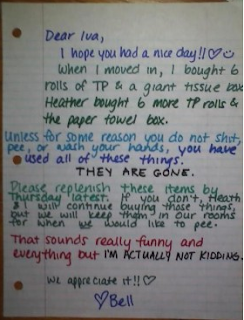 Dear Iva,
I hope you had a nice day!!♡☺
When I moved in, I bought 6
rolls of TP & a giant tissue box
Heather bought 6 more TP rolls &
the paper towel box.
Unless for some reason you do not shit,
pee, or wash your hands, you have
used all of these things.
THEY ARE GONE.
Please replenish these items by
Thursday latest. If you don't, Heath
& I will continue buying those things,
but we will keep them in our rooms
for when we would like to pee.
That sounds really funny and
everything but I'M ACTUALLY NOT KIDDING.
We appreciate it!!♡
♡Bell